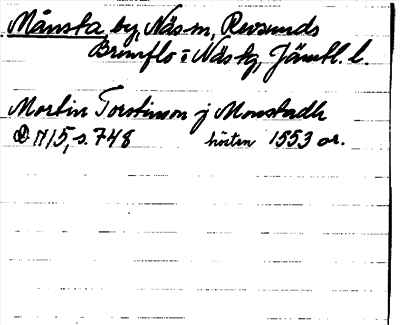 Månsta by, Näs sn, Revsunds
Brunflo o Näs tg, Jämtl. l.
Mortin Torstinson j Monstadh
DN 15, s. 748 hösten 1553 or.